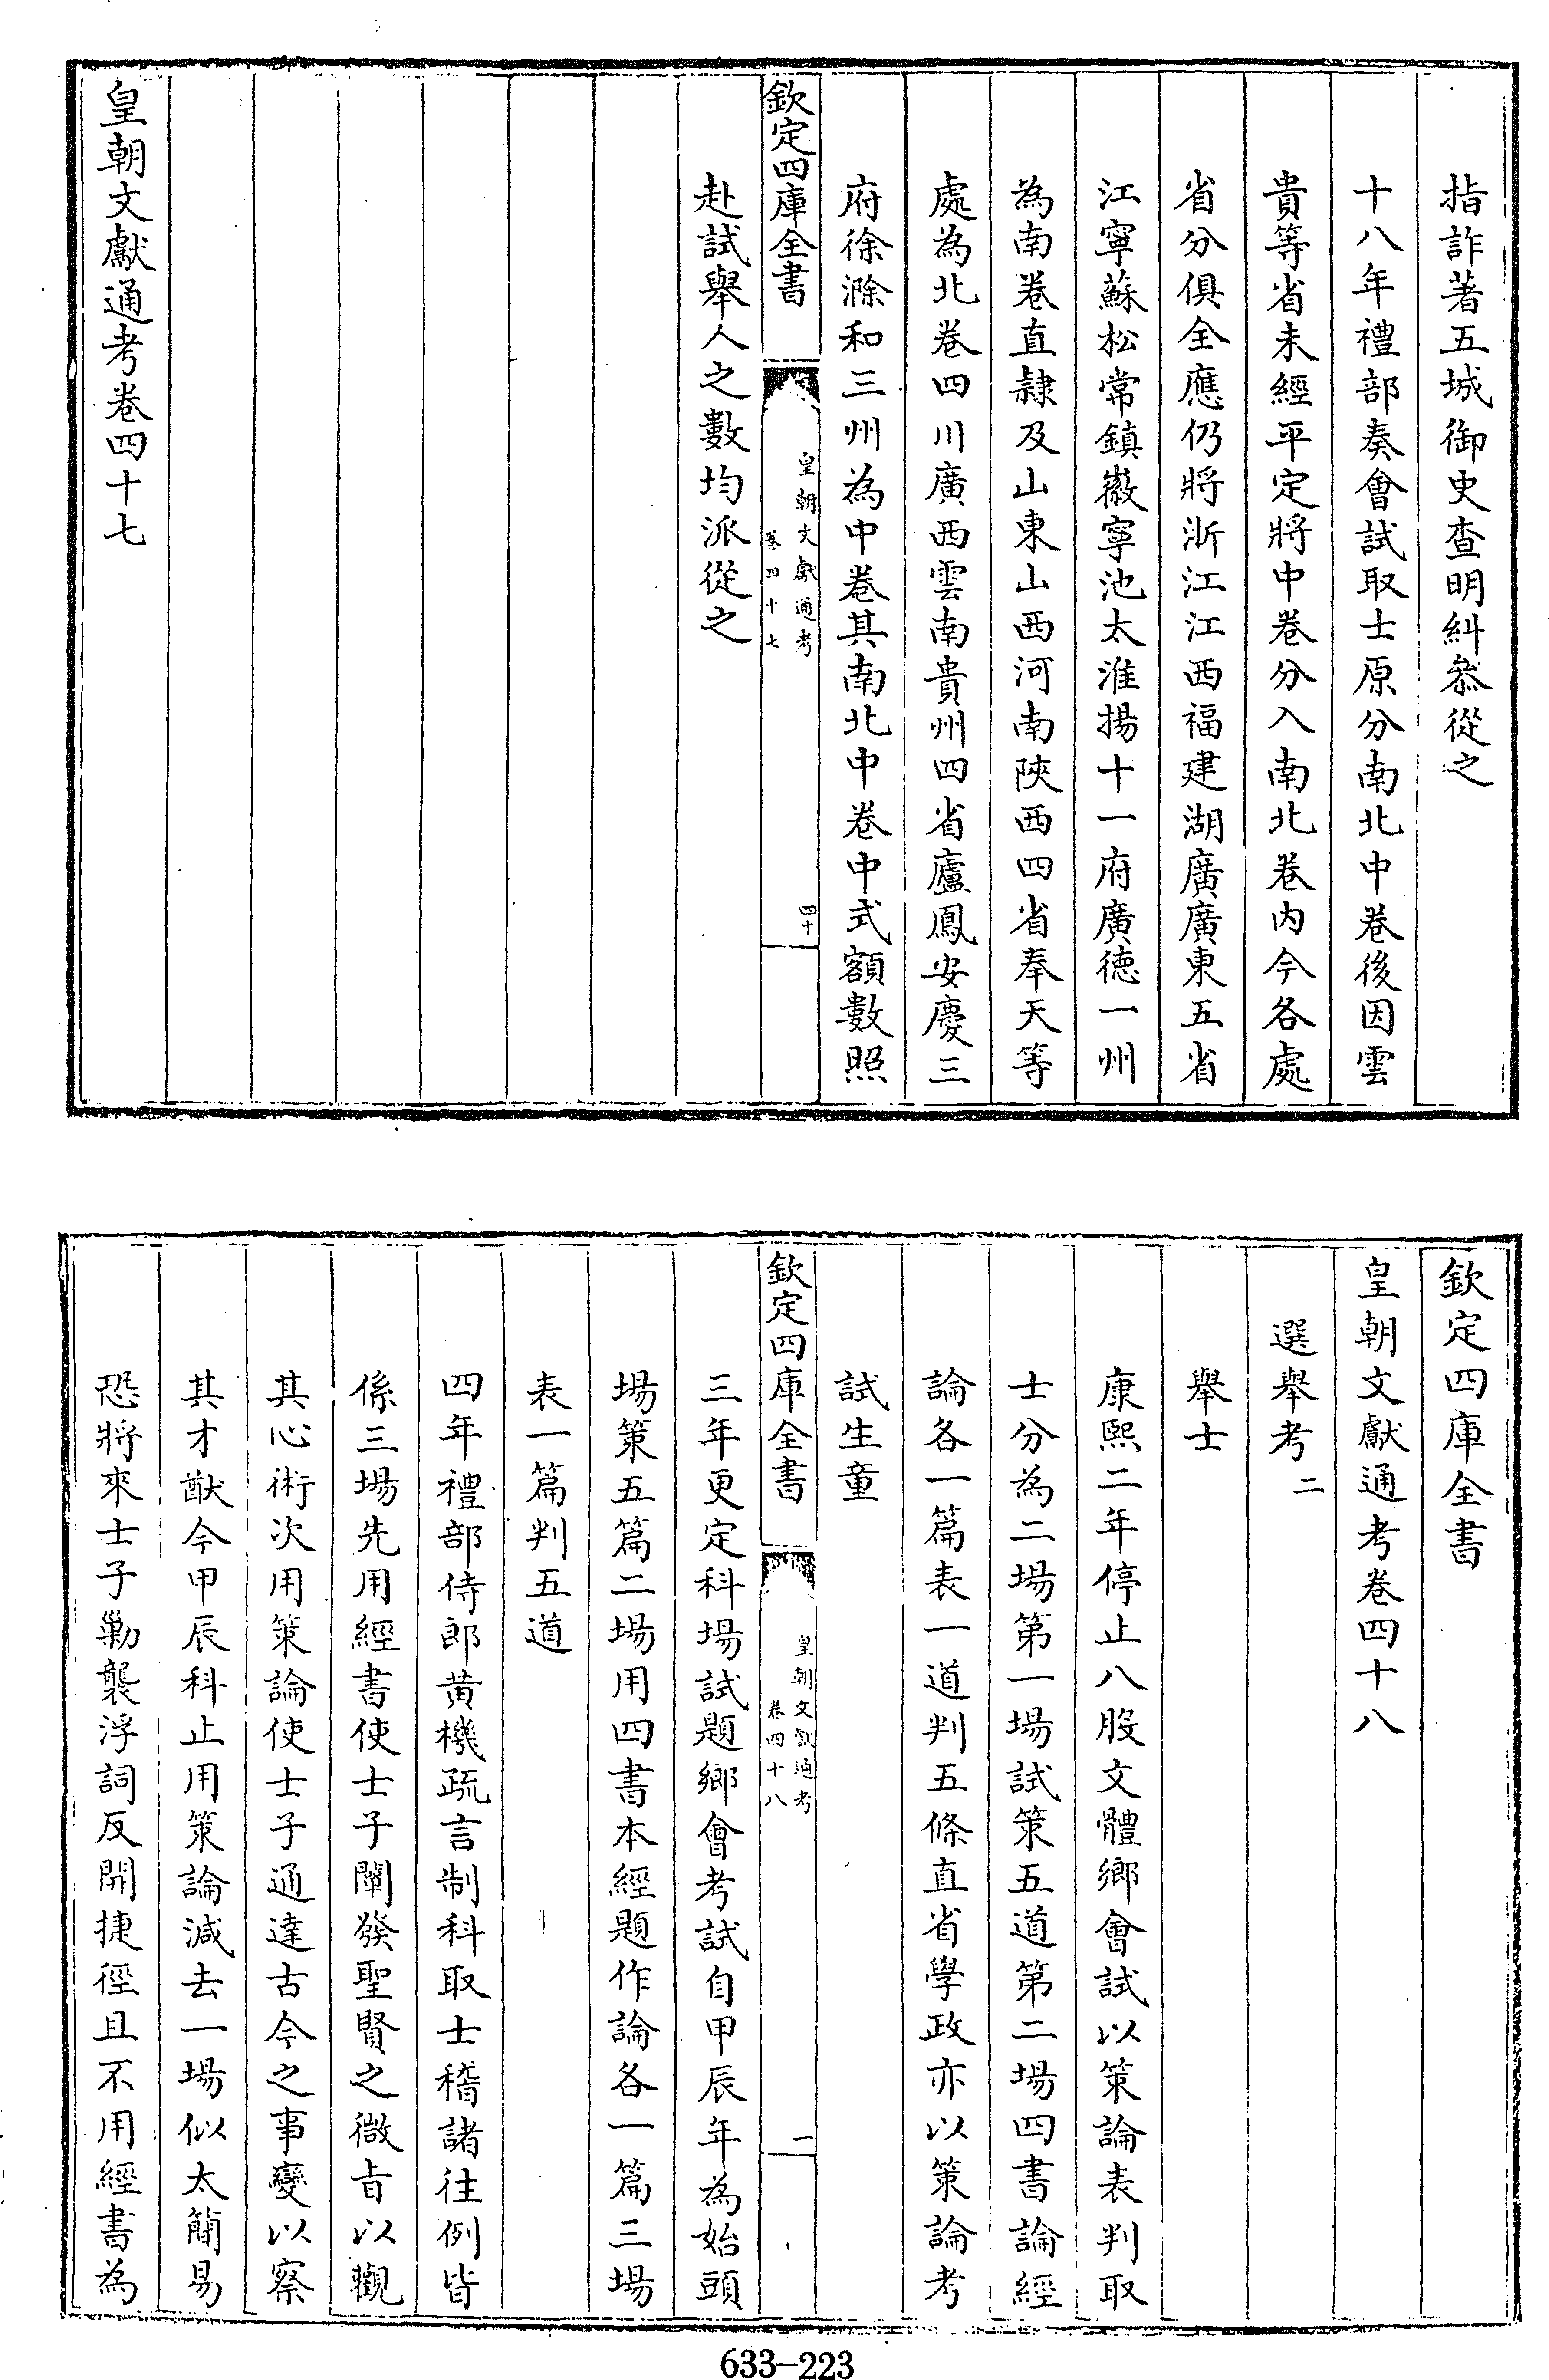 指詐著五城御史查明糾叅從之
十八年禮部奏會試取士原分南北中卷後因雲
貴等省未經平定將中卷分入南北卷内今各處
省分俱全應仍將浙江江西福建湖廣廣東五省
江寧蘇松常鎮徽寧池太淮揚十一府廣德一州
為南卷直隸及山東山西河南陜西四省奉天等
處為北卷四川廣西雲南貴州四省廬鳳安慶三
府徐滁和三州為中卷其南北中卷中式額數照
欽定四庫全書
皇朝文獻通考
卷四十七
四十
赴試舉人之數均派從之
皇朝文獻通考卷四十七
欽定四庫全書
皇朝文獻通考卷四十八
選舉考二
舉士
康熙二年停止八股文體鄉會試以策論表判取
士分為二場第一場試策五道第二場四書論經
論各一篇表一道判五條直省學政亦以策論考
試生童
欽定四庫全書
皇朝文獻通考
卷四十八
一
三年更定科場試題鄉會考試自甲辰年為始頭
場策五篇二場用四書本經題作論各一篇三場
表一篇判五道
四年禮部侍郎黄機疏言制科取士稽諸往例皆
係三場先用經書使士子闡發聖賢之微旨以觀
其心術次用策論使士子通達古今之事變以察
其才猷今甲辰科止用策論減去一場似太簡易
恐將來士子勦襲浮詞反開捷徑且不用經書為
633-223